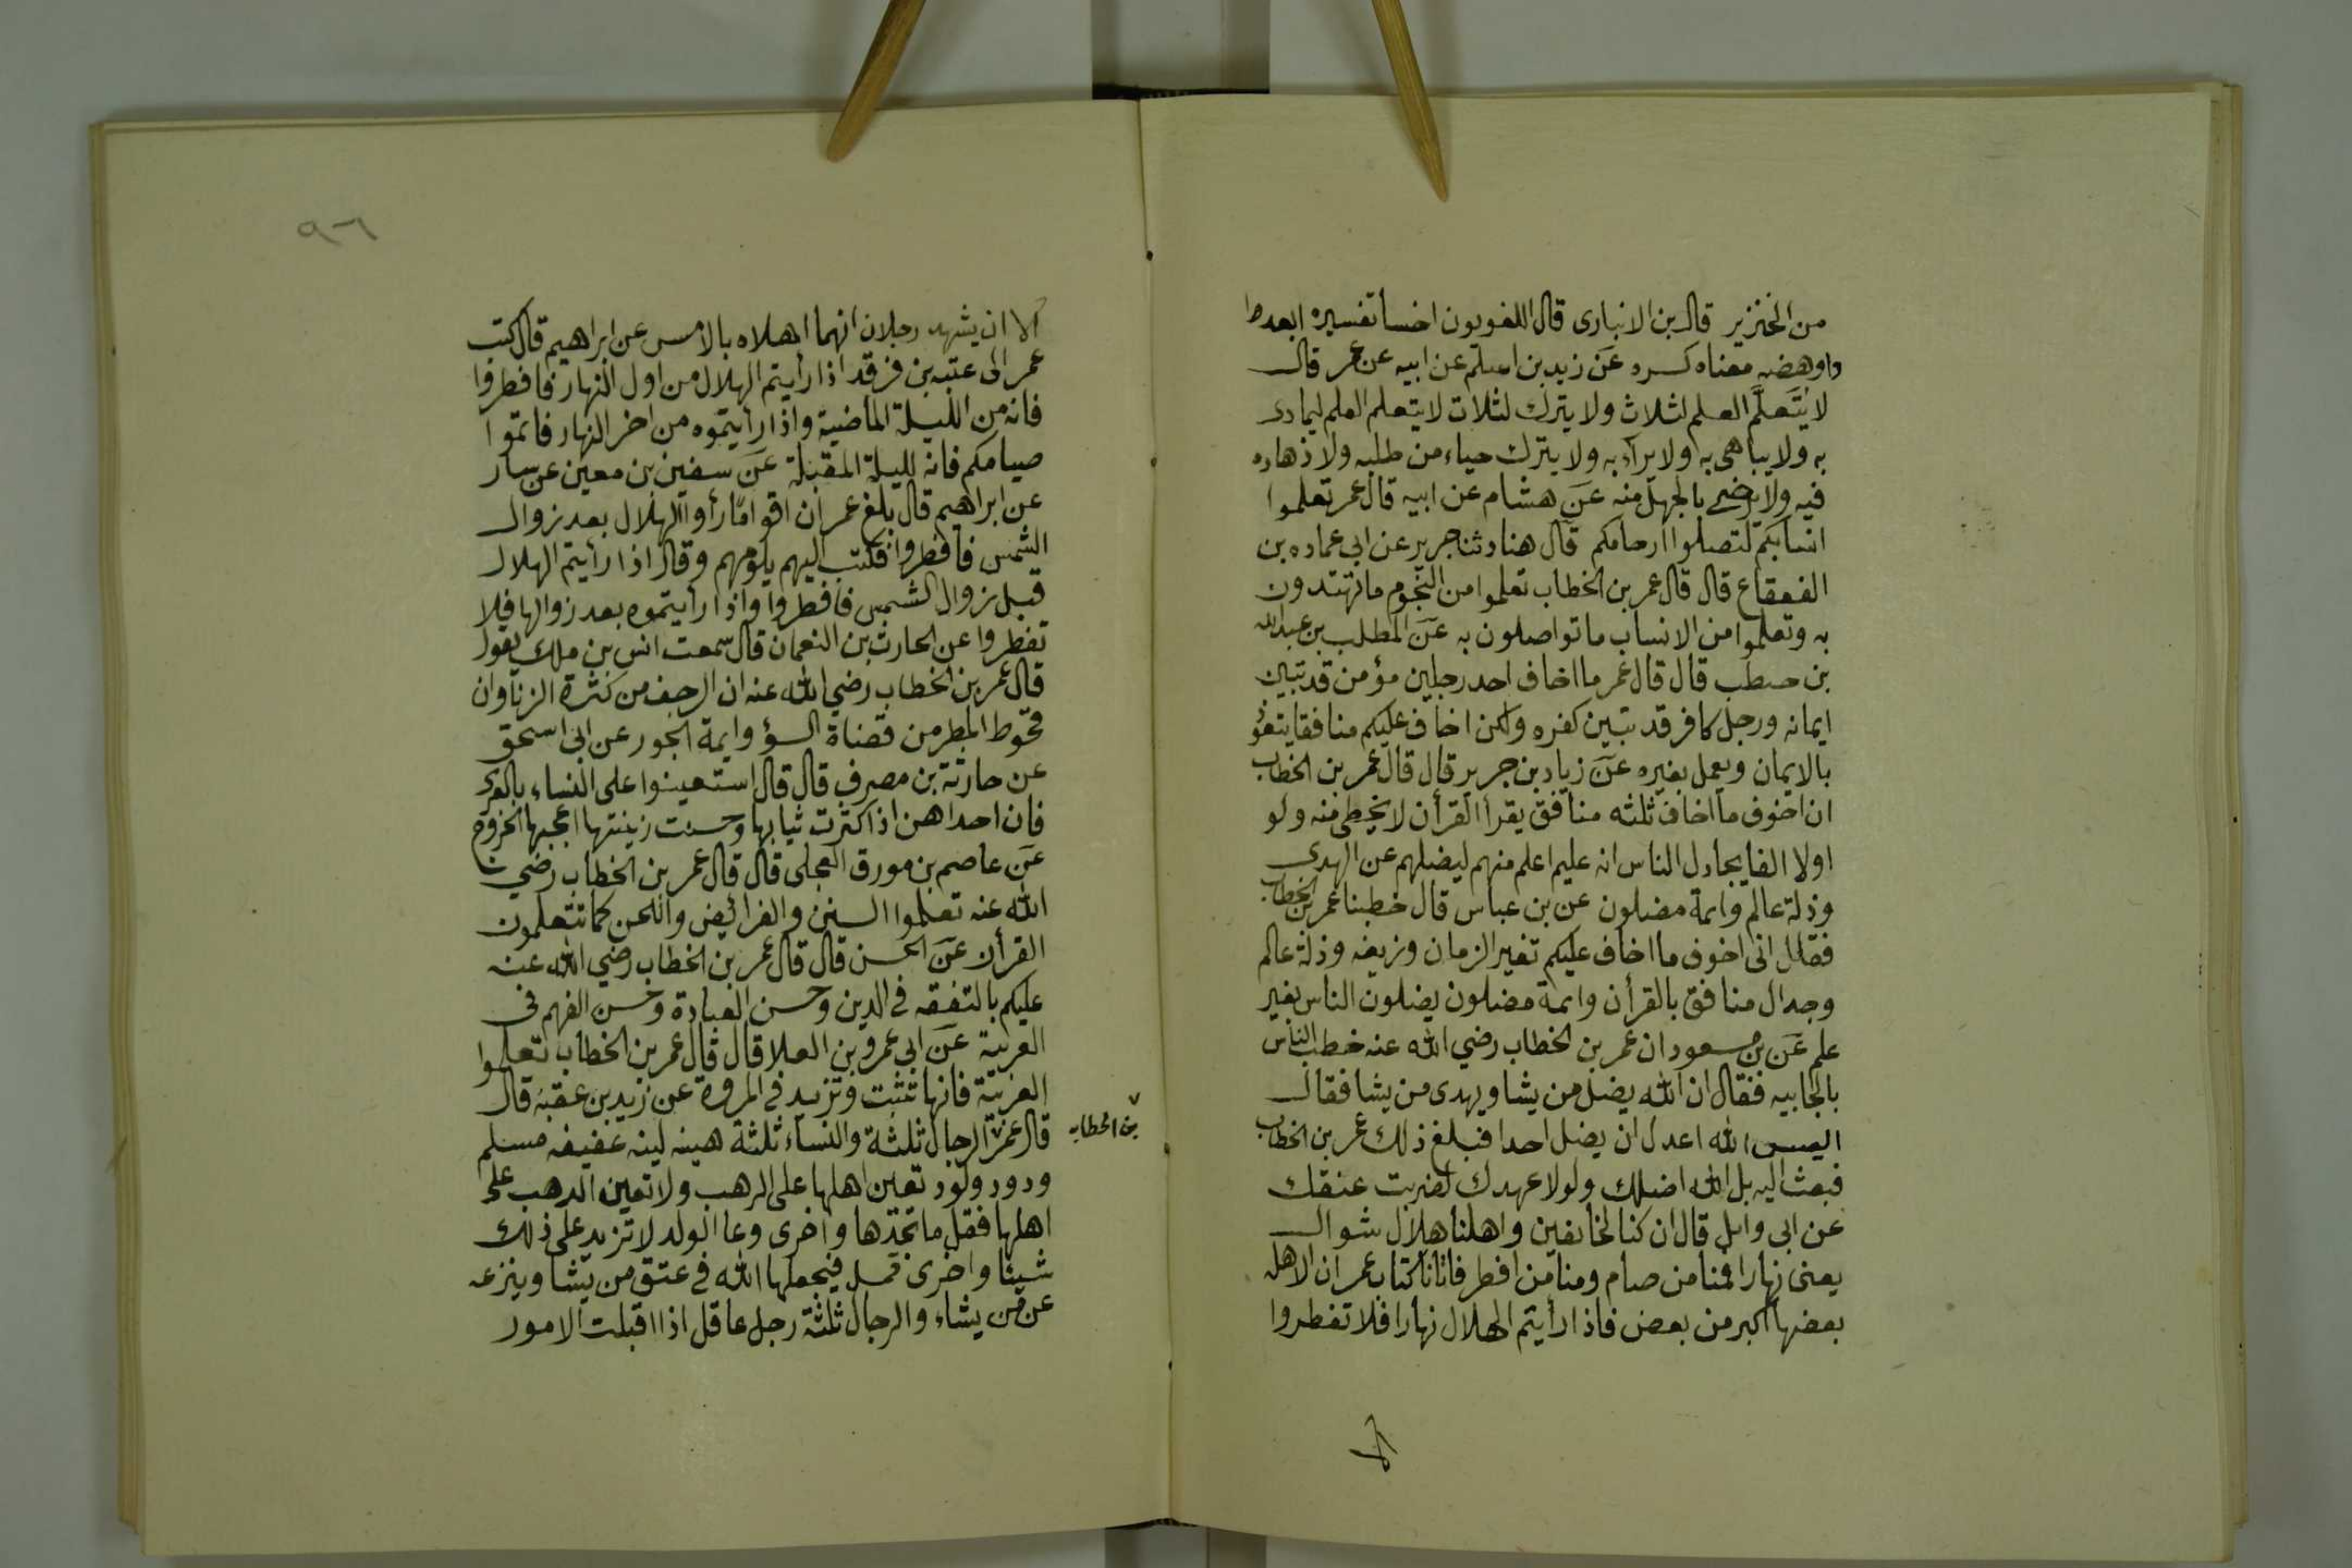 من الخنزير قال بن الانبارى قال اللغويون اخسأ تفسيره ابعد
واوهضه معناه كسره عن زيد بن اسلم عن ابيه عن عمر قال
لا يتعلم العلم لثلاث ولا يترك لثلاث لا يتعلم العلم ليمارى
به ولا يباهى به ولا يراء به ولا يترك حياء من طلبه ولا زهاده
فيه ولا رضى بالجهل منه عن هشام عن ابيه قال عمر تعلموا
انسابكم لتصلوا ارحامكم قال هنا دثنا جرير عن ابى عماره بن
القعقاع قال قال عمر بن الخطاب تعلموا من النجوم ما تهتدون
به وتعلموا من الانساب ما تواصلون به عن المطلب بن عبد الله
بن حطب قال قال عمر ما اخاف احد رجلين مؤمن قد تبين
ايمانه ورجل كافر قد تبين كفره ولكن اخاف عليكم منافقا يتعوذ
بالايمان ويعمل بغيره عن زياد بن جرير قال قال عمر بن الخطاب
ان اخوف ما اخاف ثلثه منافق يقرأ القرأن لا يخطى منه ولو
اولا الفا يجادل الناس انه عليم اعلم منهم ليضلهم عن الهدى
وذلة عالم وائمة مضلون عن بن عباس قال خطبنا عمر بن الخطاب
فقال انى اخوف ما اخاف عليكم تغير الزمان وزيغه وذلة عالم
وجدال منافق بالقرأن وائمة مضلون يضلون الناس بغير
علم عن بن مسعود ان عمر بن الخطاب رضي الله عنه خطب الناس
بالجابيه فقال ان الله يضل من يشا ويهدى من يشا فقال
اليس الله اعدل ان يضل احدا فبلغ ذلك عمر بن الخطاب
فبعث اليه بل الله اضلك ولولا عهدك لضربت عنقك
عن ابى وايل قال ان كنا لخانقين واهلنا هلال شوال
يعنى نهارا فمنا من صام ومنا من افطر فاتانا كتاب عمر ان الاهلة
بعضها اكبر من بعض فاذا رأيتم الهلال نهارا فلا تفطروا
الا
٩٦
الا ان يشهد رجلان انهما اهلاه بالامس عن ابراهيم قال كتب
عمر الى عتبه بن فرقد اذا رأيتم الهلال من اول النهار فافطروا
فانه من الليلة الماضية واذا رأيتموه من اخر النهار فاتموا
صيامكم فانه لليلة المقبلة عن سفين بن معين عن سار
عن ابراهيم قال بلغ عمر ان اقواما رأوا الهلال بعد زوال
الشمس فافطروا فكتب اليهم يلومهم وقال اذا رأيتم الهلال
قبل زوال الشمس فافطروا واذا رأيتموه بعد زوالها فلا
تفطروا عن الحارث بن النعمان قال سمعت انس بن ملك يقول
قال عمر بن الخطاب رضي الله عنه ان الرجف من كثرة الزنا وان
قحوط المطر من قضاة السؤ وايمة الجور عن ابى اسحق
عن حارثة بن مصرف قال قال استعينوا على النساء بالعرى
فان احداهن اذا كثرت ثيابها وحسنت زينتها اعجبها الخروج
عن عاصم بن مورق العجلى قال قال عمر بن الخطاب رضي
الله عنه تعلموا السنن والفرائض واللحن كما تتعلمون
القرأن عن الحسن قال قال عمر بن الخطاب رضي الله عنه
عليكم بالتفقه فى الدين وحسن العبادة وحسن الفهم فى
العربية عن ابى عمرو بن العلا قال قال عمر بن الخطاب تعلموا
العربية فانها تثبت وتزيد فى المروة عن زيد بن عقبه قال
قال عمر الرجال ثلثة والنساء ثلثة هينه لينه عفيفه مسلم
بن الخطاب
ودود ولود تعين اهلها على الدهب ولا تعين الدهب على
اهلها فقل ما تجدها واخرى وعا الولد لا تزيد على ذلك
شيئا واخرى قمل فيجعلها الله فى عتق من يشا وينزعه
عن من يشاء والرجال ثلثة رجل عاقل اذا اقبلت الامور